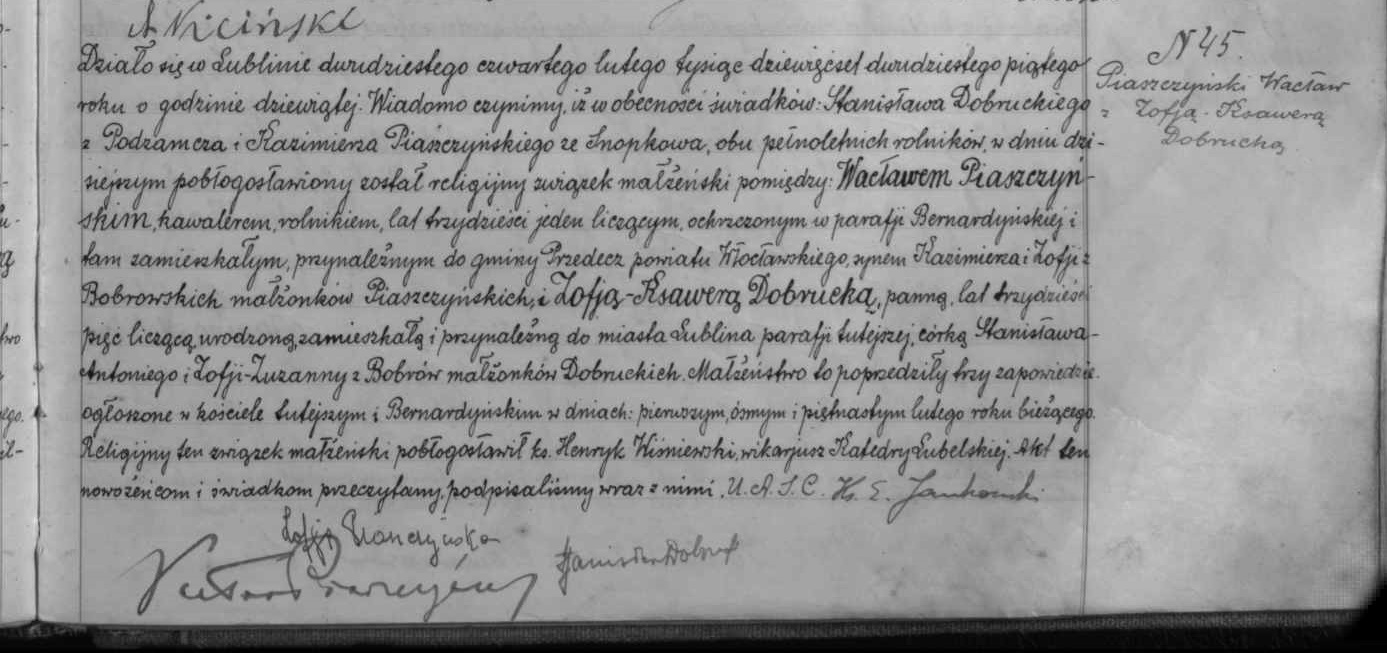 A Niciński
Działo się w Lublinie dwudziestego czwartego lutego tysiąc dziewięćset dwudziestego piątego
roku o godzinie dziewiątej. Wiadomo czynimy, iż w obecności świadków: Stanisława Dobruckiego
z Podzamcza i Kazimierza Piaszczyńskiego ze Snopkowa, obu pełnoletnich rolników, w dniu dzi-
siejszym pobłogosławiony został religijny związek małżeński pomiędzy: Wacławem Piaszczyń-
skim, kawalerem, rolnikiem, lat trzydzieści jeden liczącym, ochrzczonym w parafji Bernardyńskiej i
tam zamieszkałym, przynależnym do gminy Przedecz powiatu Włocławskiego, synem Kazimierza i Zofji z
Bobrowskich małżonków Piaszczyńskich, i Zofją-Ksawerą Dobrucką, panną, lat trzydzieści
pięć liczącą, urodzoną, zamieszkałą i przynależną do miasta Lublina parafji tutejszej, córką Stanisława-
Antoniego i Zofji-Zuzanny z Bobrów małżonków Dobruckich. Małżeństwo to poprzedziły trzy zapowiedzie
ogłoszone w kościele tutejszym i Bernardyńskim w dniach: pierwszym, ósmym i piętnastym lutego roku bieżącego.
Religijny ten związek małżeński pobłogosławił ks. Henryk Wiśniewski, wikarjusz Katedry Lubelskiej. Akt ten
nowożeńcom i świadkom przeczytany, podpisaliśmy wraz z nimi. U.A.S.C. Ks. E. Jankowski
Zofja
Stanisław
N 45.
Piaszczyński Wacław
z Zofją-Ksawerą
Dobrucką